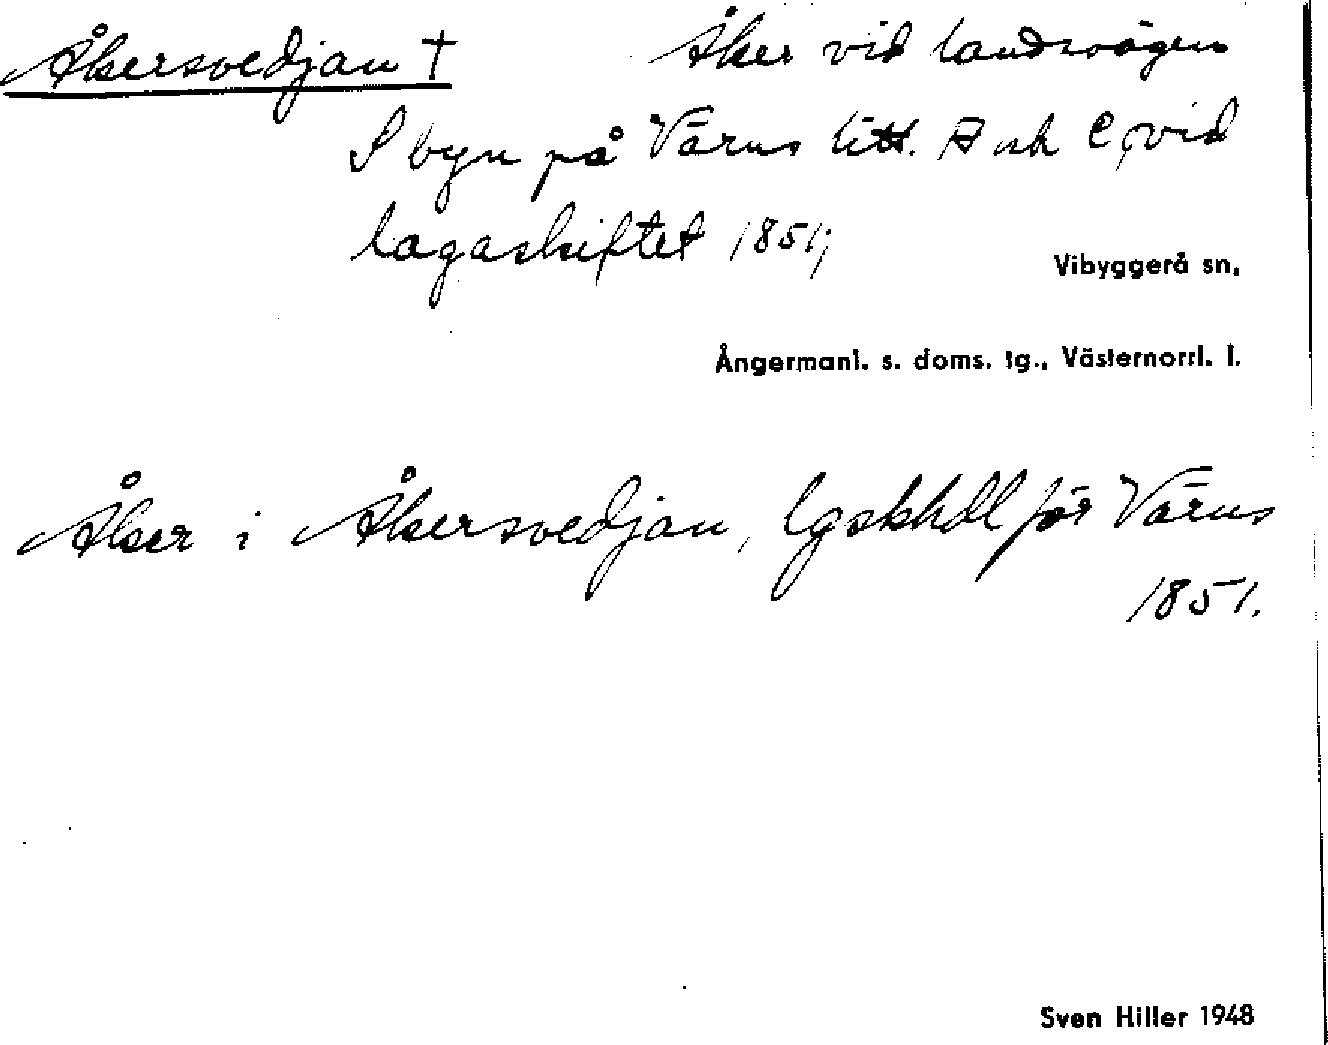 Åkersvedjan † Åker vid landsvägen
I byn på Värns litt. A och C, vid
lagaskiftet 1851;
Vibyggerå sn,
Ångermanl. s. doms. tg., Västernorrl. l.
Åker i Åkersvedjan, lgskhdl för Värns
1851.
Sven Hiller 1948